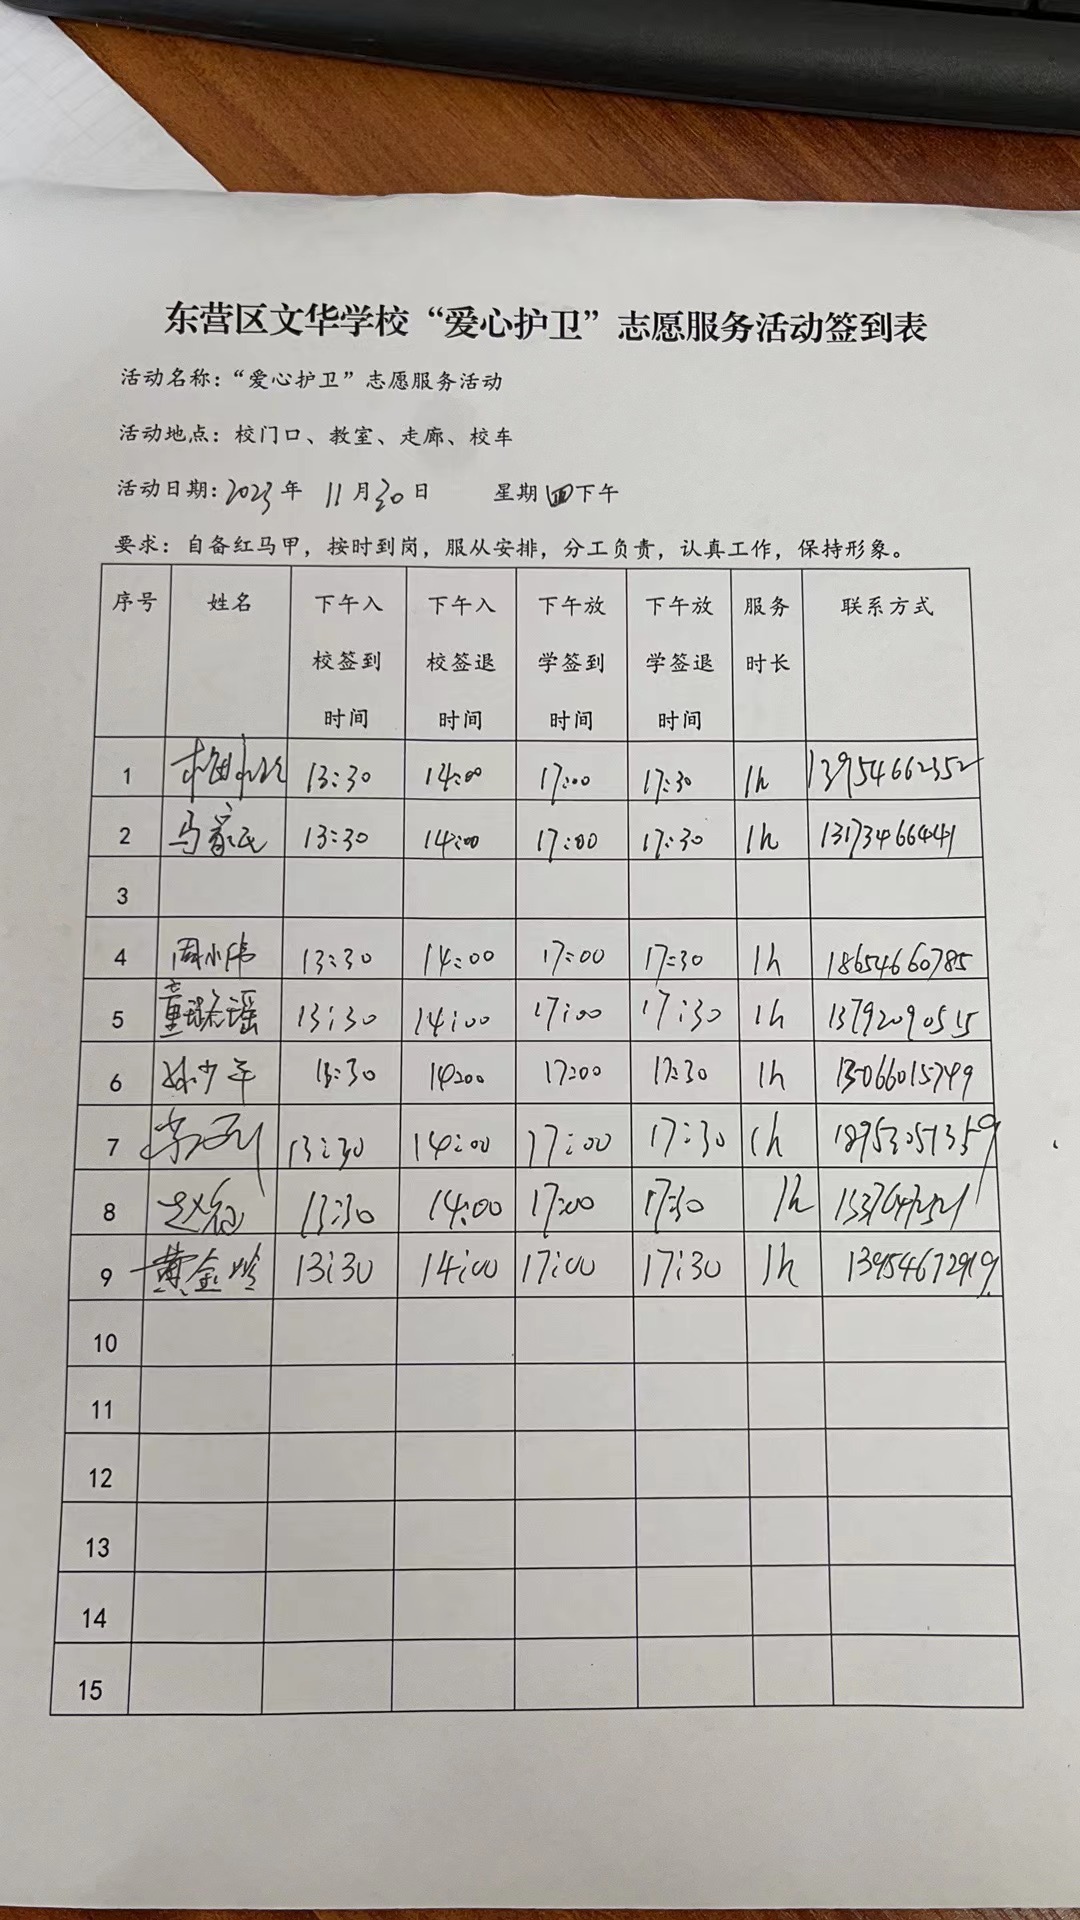 东营区文华学校“爱心护卫”志愿服务活动签到表
活动名称：“爱心护卫”志愿服务活动
活动地点：校门口、教室、走廊、校车
活动日期：2023年 11月30日 星期四下午
要求：自备红马甲，按时到岗，服从安排，分工负责，认真工作，保持形象。
序号 姓名 下午入校签到时间 下午入校签退时间 下午放学签到时间 下午放学签退时间 服务时长 联系方式
1 13:30 14:00 17:00 17:30 1h 13954662352
2 马家民 13:30 14:00 17:00 17:30 1h 13173466441
3
4 周小伟 13:30 14:00 17:00 17:30 1h 18654660785
5 13:30 14:00 17:00 17:30 1h 13792090515
6 孙少军 13:30 14:00 17:00 17:30 1h 13066015749
7 13:30 14:00 17:00 17:30 1h 18953051359
8 13:30 14:00 17:00 17:30 1h
9 黄金玲 13:30 14:00 17:00 17:30 1h 13954672919
10
11
12
13
14
15